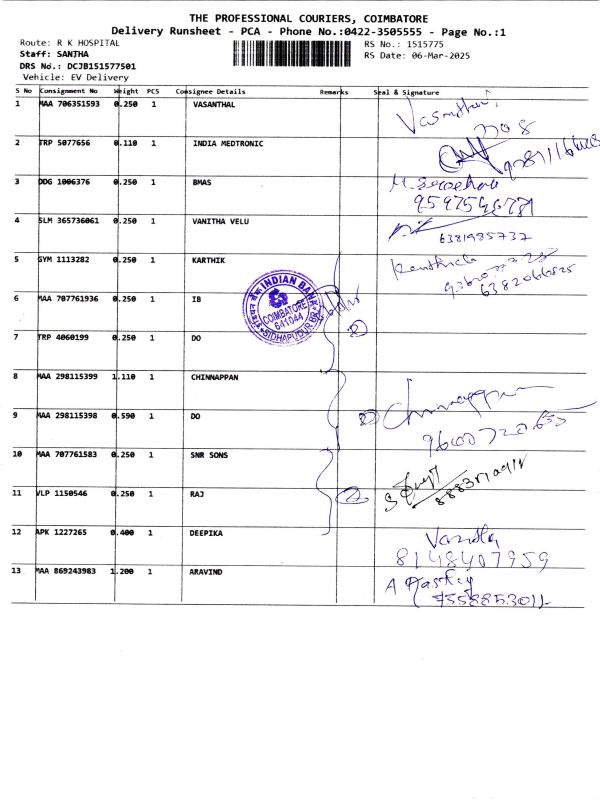 THE PROFESSIONAL COURIERS, COIMBATORE
Delivery Runsheet - PCA - Phone No.:0422-3505555 - Page No.:1
Route: R K HOSPITAL
RS No.: 1515775
Staff: SANTHA
RS Date: 06-Mar-2025
DRS No.: DCJB151577501
Vehicle: EV Delivery
S No Consignment No Weight PCS Consignee Details Remarks Seal & Signature
1 MAA 706351593 0.250 1 VASANTHAL
2 TRP 5077656 0.110 1 INDIA MEDTRONIC
3 DDG 1006376 0.250 1 BMAS
4 SLM 365736061 0.250 1 VANITHA VELU
6381985737
5 GYM 1113282 0.250 1 KARTHIK
6 MAA 707761936 0.250 1 IB
INDIAN BANK
COIMBATORE
641044
SIDHAPUDUR BR
7 TRP 4060199 0.250 1 DO
2
8 MAA 298115399 1.110 1 CHINNAPPAN
Chinnappan
9 MAA 298115398 0.590 1 DO
2
10 MAA 707761583 0.250 1 SNR SONS
11 VLP 1150546 0.250 1 RAJ
2
12 APK 1227265 0.400 1 DEEPIKA
8148407959
13 MAA 869243983 1.200 1 ARAVIND
7558853011